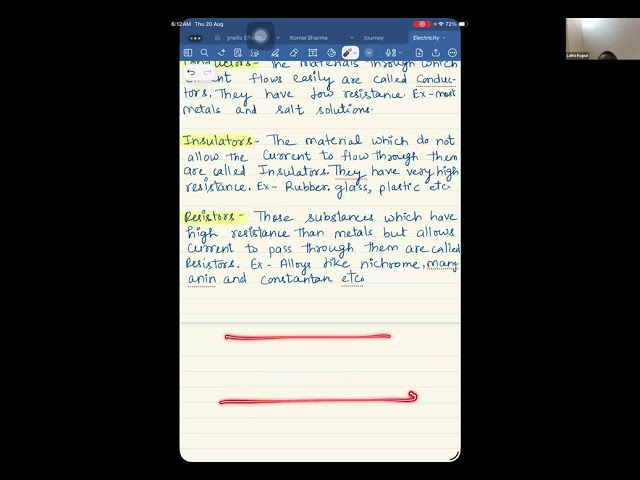 6:12 AM Thu 20 Aug
72%
Komal Sharma
Journey
Electricity
Conductors- The materials through which
current flows easily are called Conduc-
tors. They have low resistance. Ex- most
metals and salt solutions.
Insulators- The material which do not
allow the current to flow through them
are called Insulators. They have very high
resistance. Ex- Rubber, glass, plastic etc
Resistors- Those substances which have
high resistance than metals but allows
current to pass through them are called
Resistors. Ex- Alloys like nichrome, mang
anin and constantan etc.